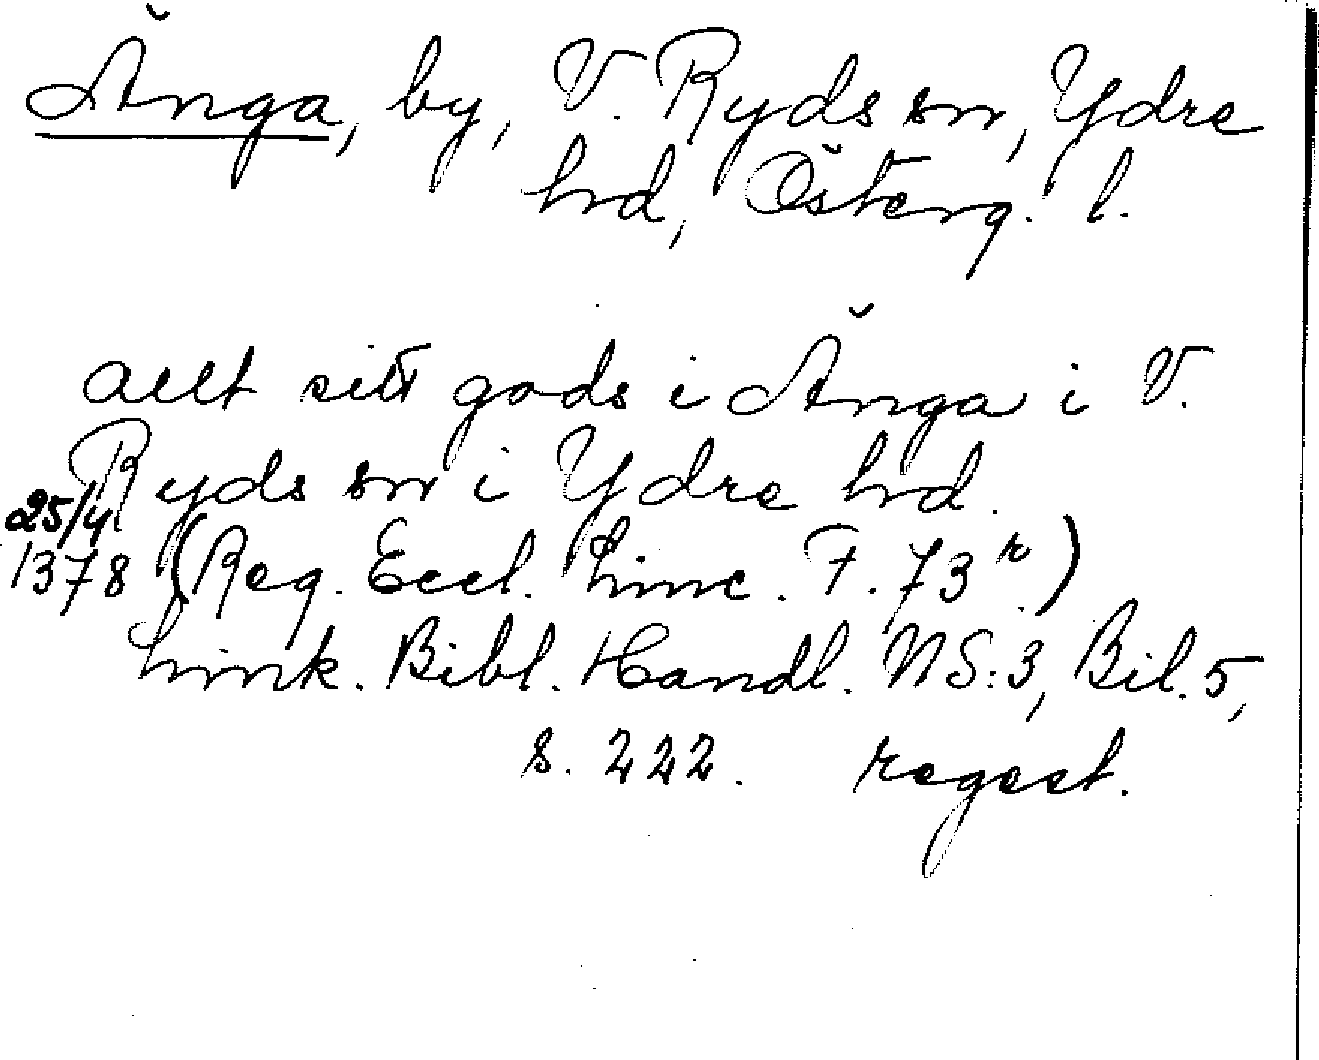 Änga, by, V. Ryds sn, Ydre
hd, Österg. l.
allt sitt gods i Änga i V.
Ryds sn i Ydre hd.
25/4
1378 (Reg. Eccl. Linc. F. 73 r.)
Link. Bibl. Handl. NS:3, Bil. 5,
s. 222. regest.